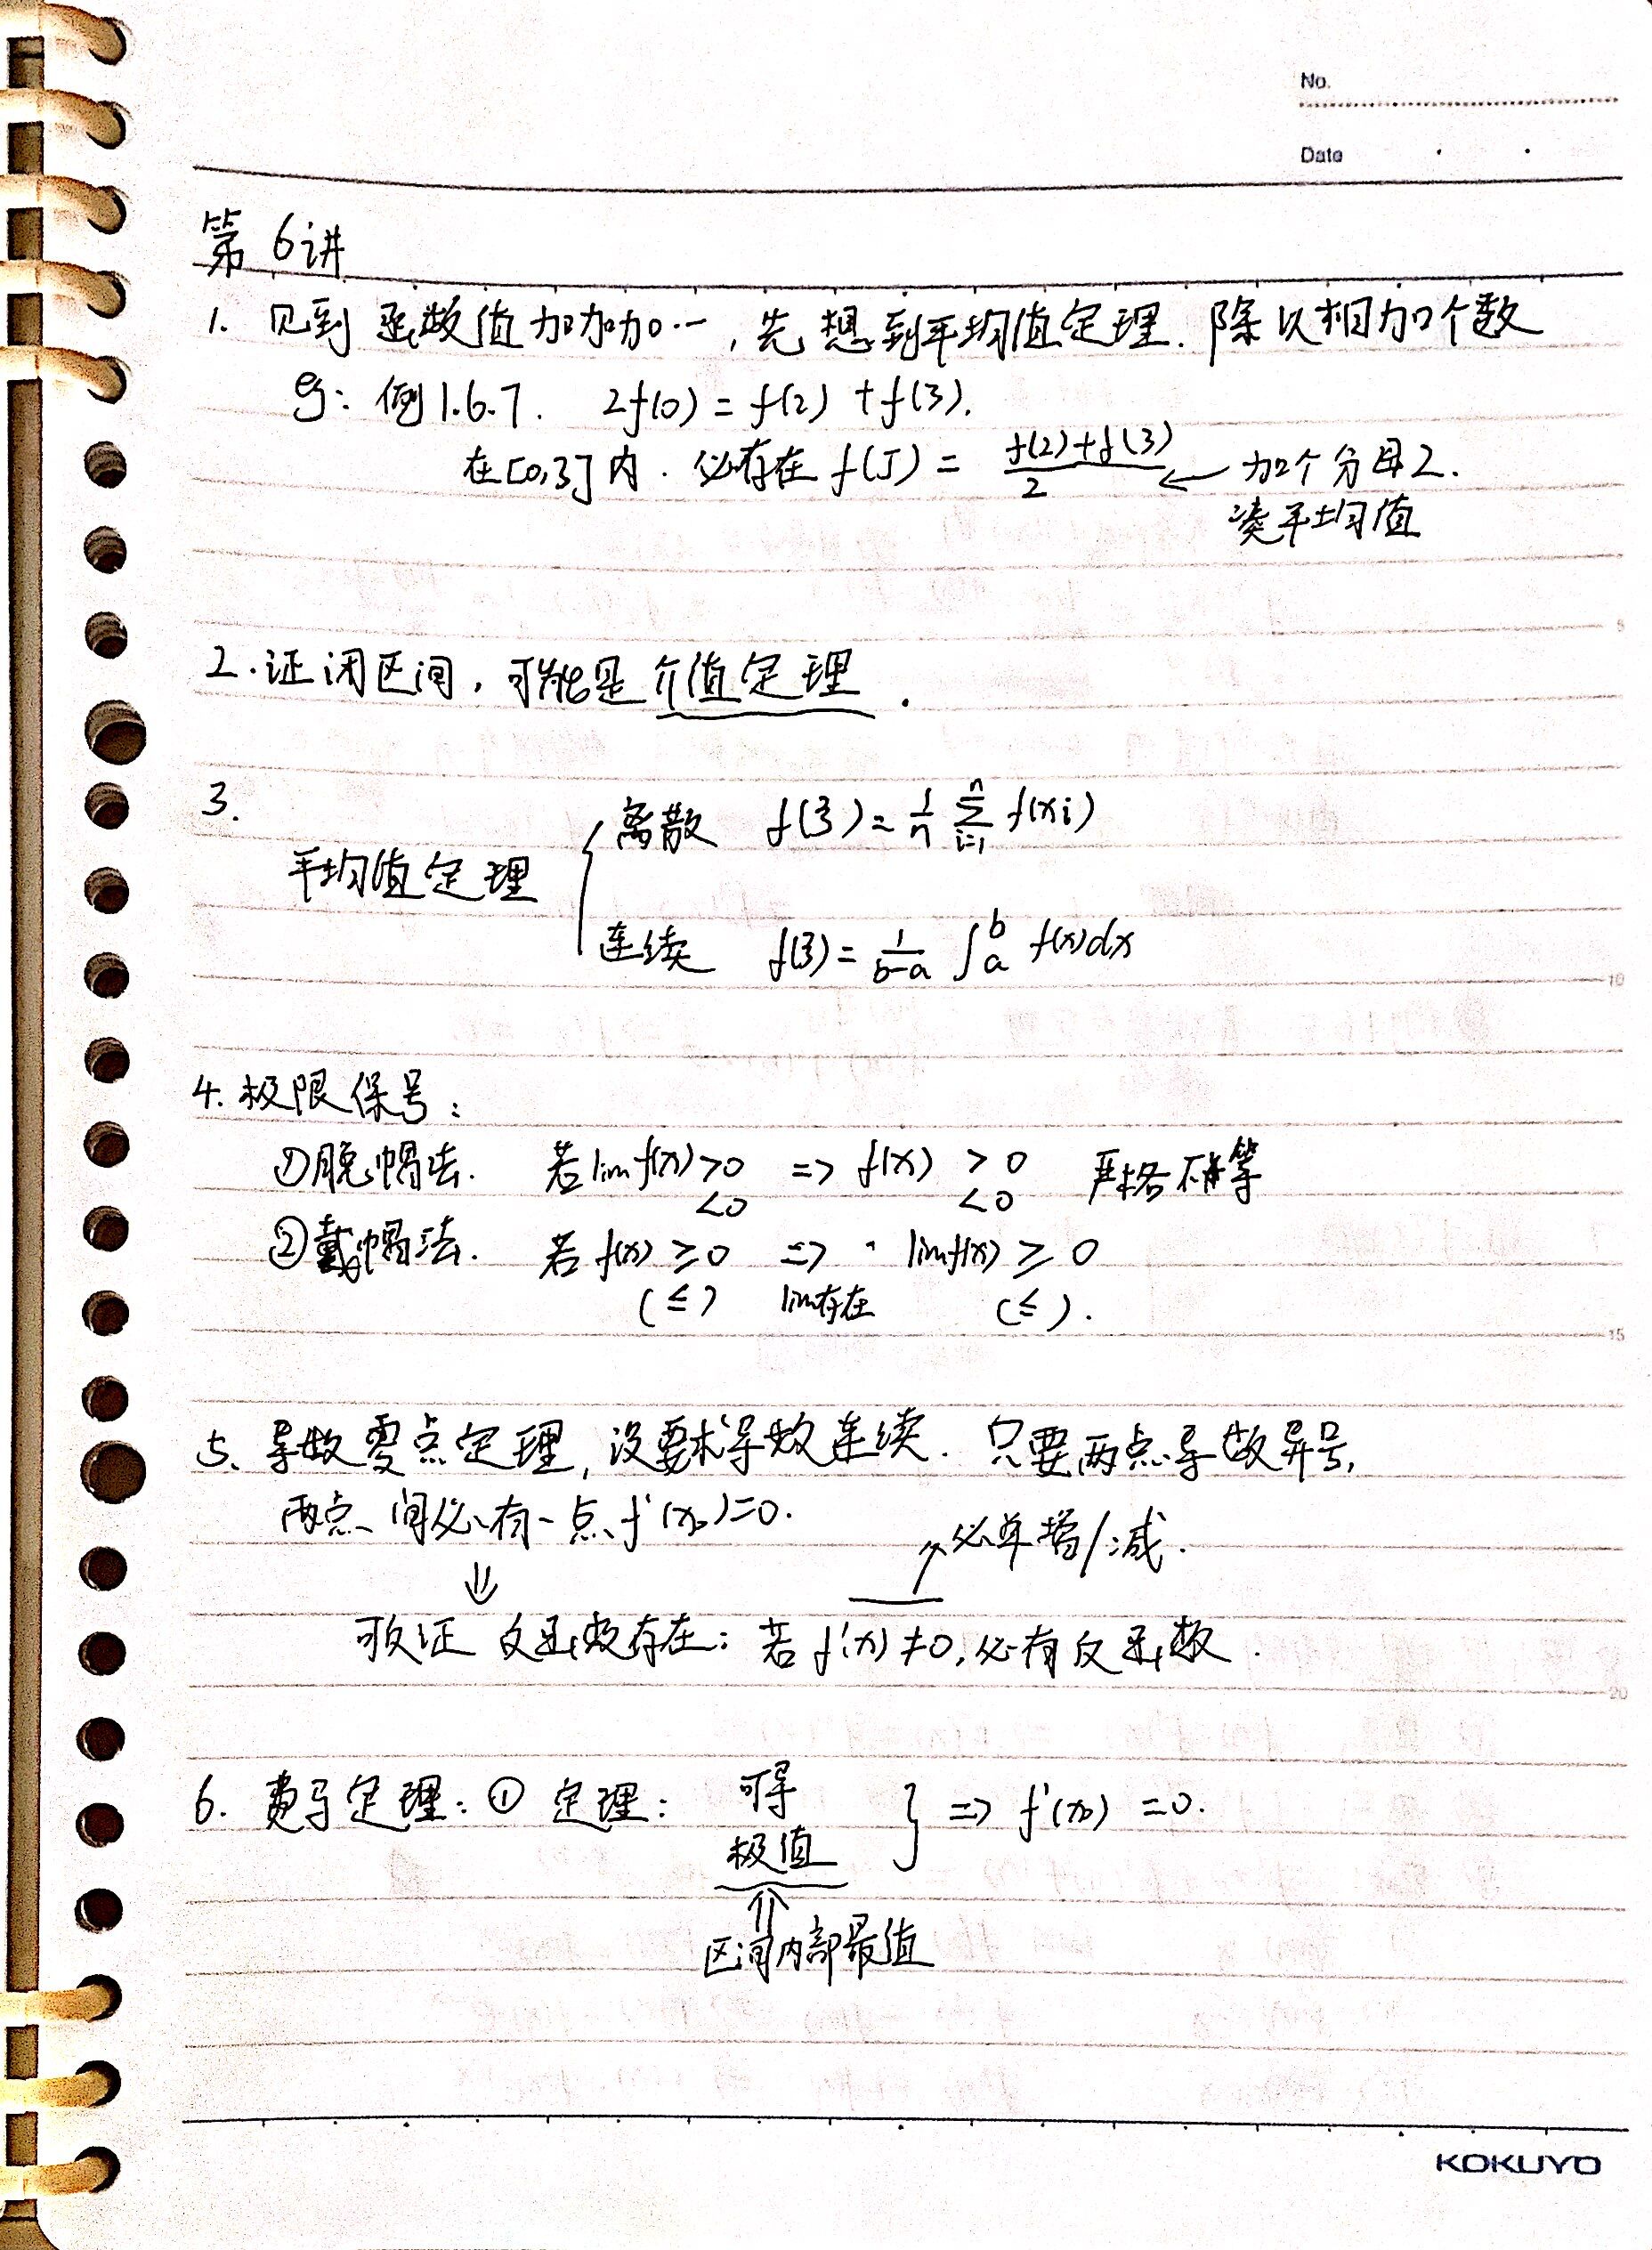 No.
Date
第6讲
1. 见到函数值加加加…,先想到平均值定理.除以相加个数
eg: 例1.6.7. 2f(0) = f(2) + f(3).
在[0,3]内. 必存在 f(ξ) = \frac{f(2)+f(3)}{2} ← 加2个分母2.
凑平均值
2.证闭区间,可能是介值定理.
3.
离散 f(ξ) = \frac{1}{n} \sum_{i=1}^{n} f(xi)
平均值定理
连续 f(ξ) = \frac{1}{b-a} \int_a^b f(x)dx
4. 极限保号:
①脱帽法. 若 lim f(x) >0 => f(x) >0 严格不等
<0 <0
②戴帽法. 若 f(x) ≥0 => lim f(x) ≥ 0
(≤) lim存在 (≤).
5. 导数零点定理,没要求导数连续.只要两点导数异号,
两点间必有一点 f'(x₀)=0.
↗必单增/减.
⇓
可以证 反函数存在: 若 f'(x) ≠0,必有反函数.
6. 费马定理:① 定理: 可导 } => f'(x₀) =0.
极值
⇑
区间内部最值
5
10
15
20
KOKUYO